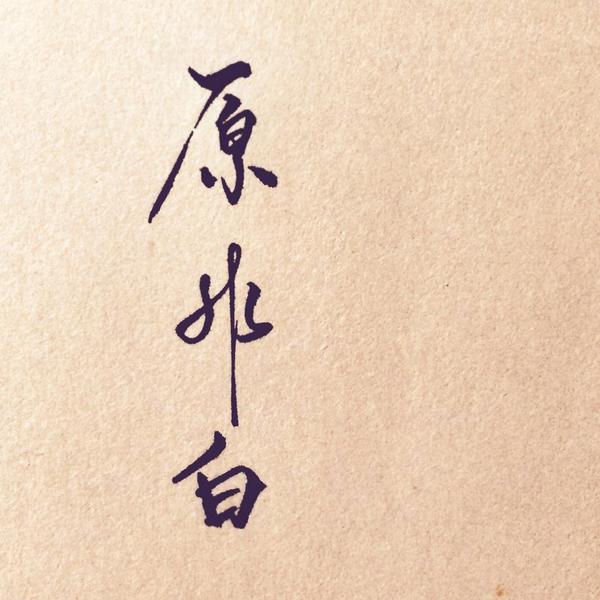 原
非
白